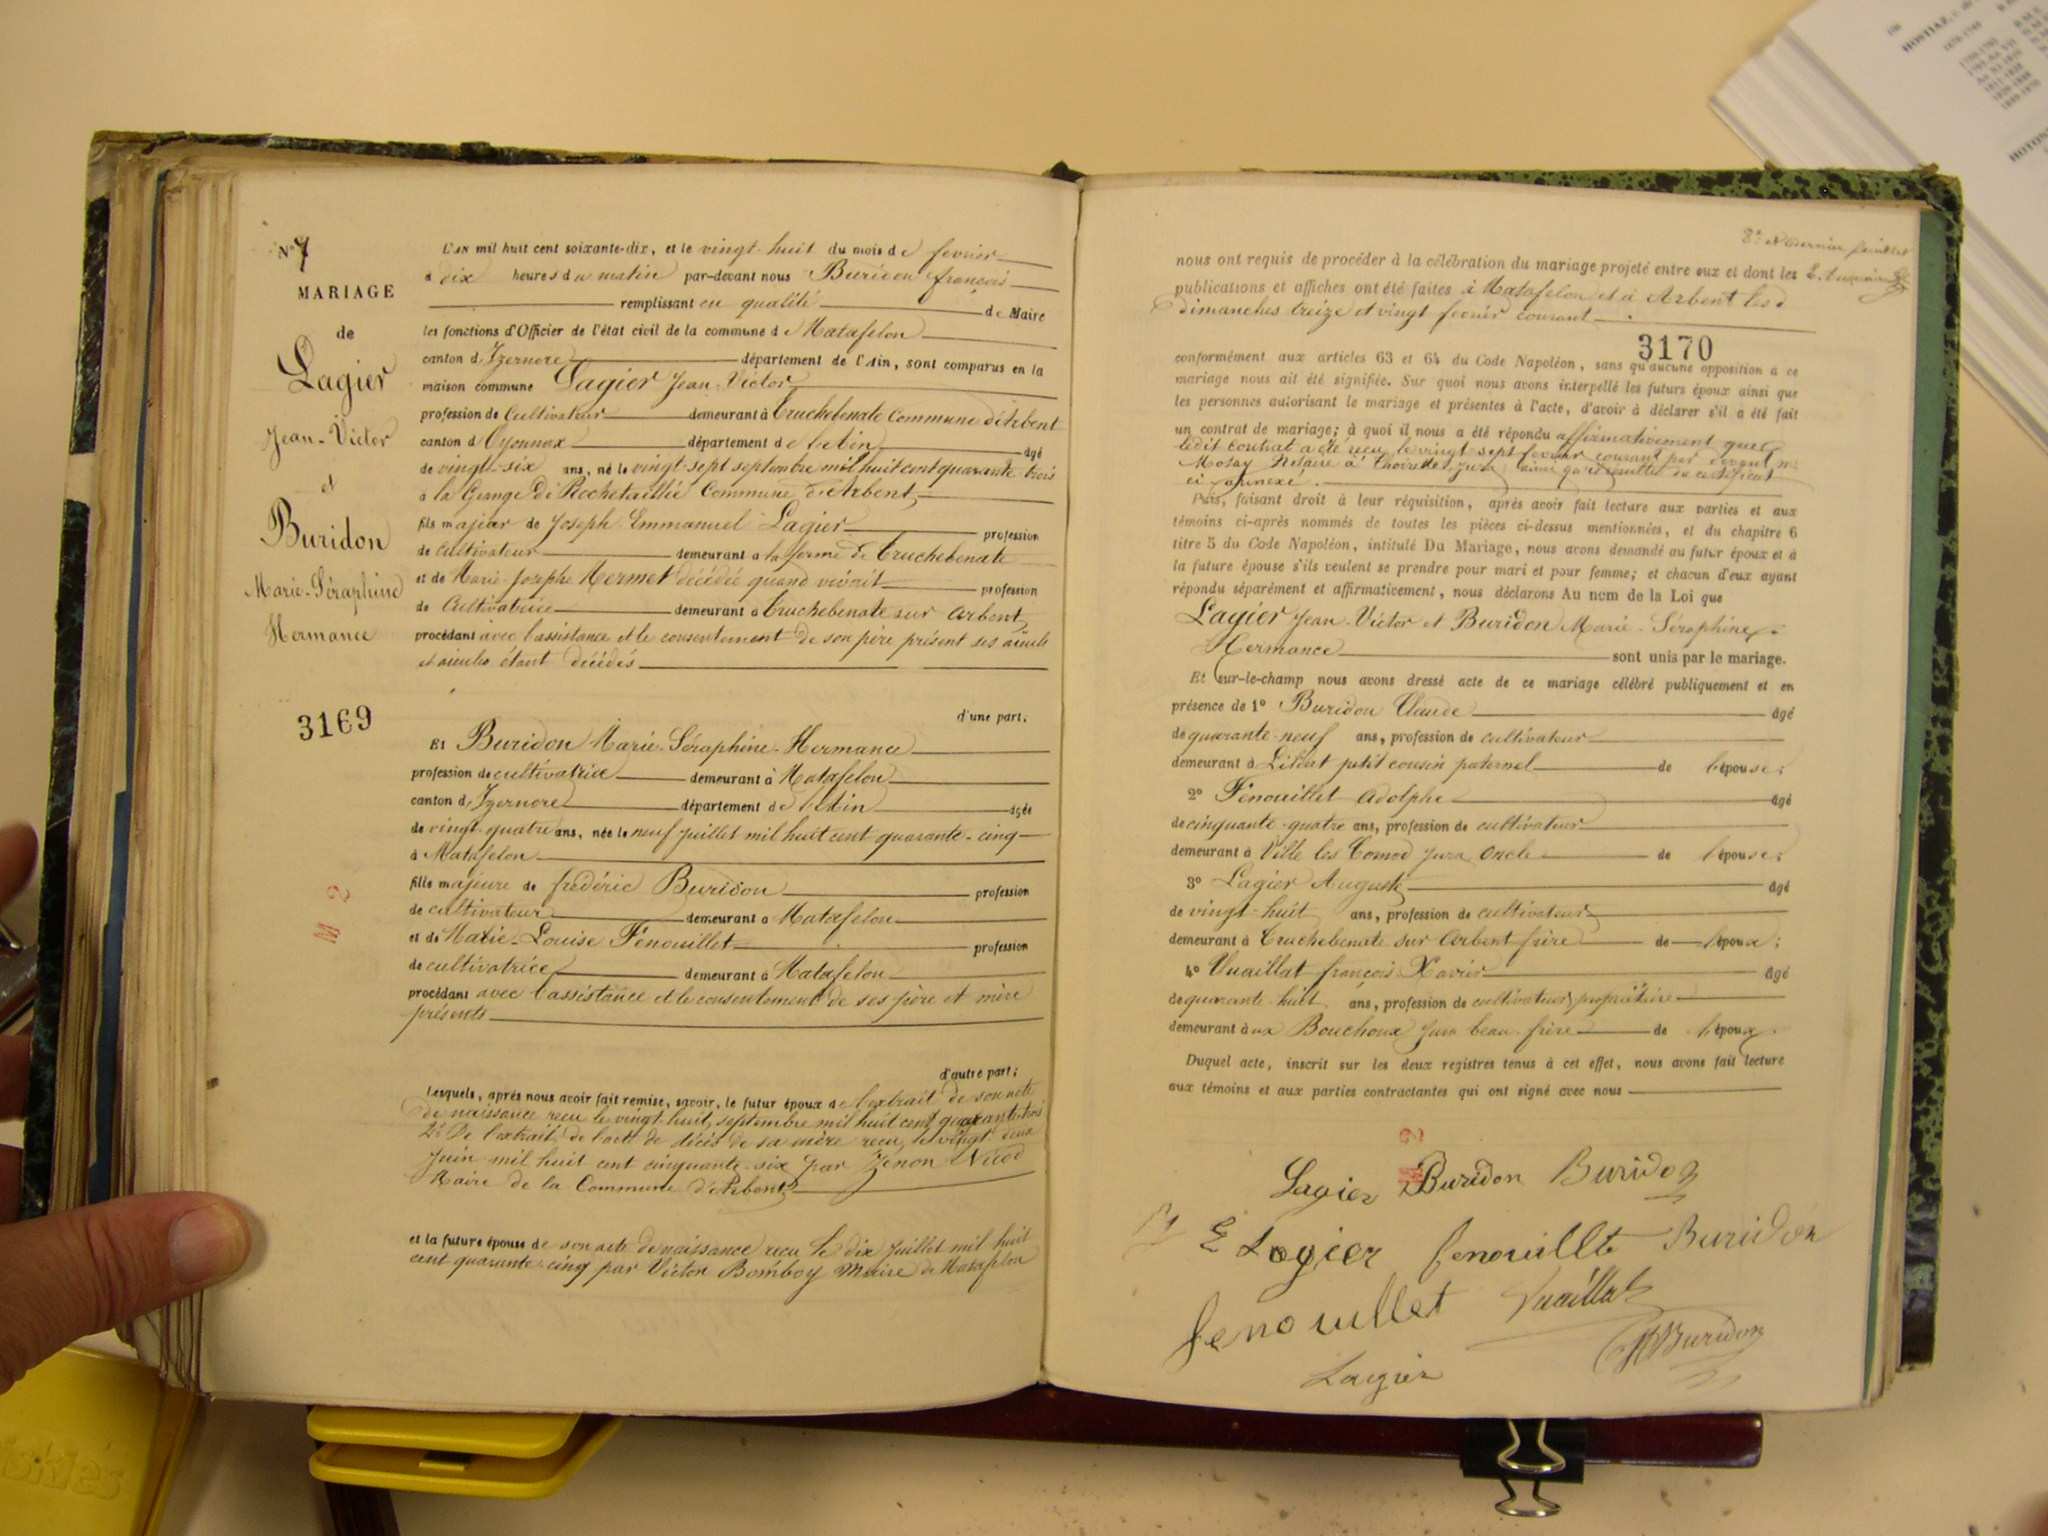 N° 7
MARIAGE
de
Lagier
Jean-Victor
et
Buridon
Marie-Séraphine
Hermance
3169
M 2
L'AN mil huit cent soixante-dix, et le vingt-huit du mois de fevrier
à dix heures du matin par-devant nous Buridon françois
remplissant en qualité de Maire
les fonctions d'Officier de l'état civil de la commune de Matafelon
canton d'Izernore département de l'Ain, sont comparus en la
maison commune Lagier Jean-Victor
profession de Cultivateur demeurant à Truchebenate Commune d'Arbent
canton d'Oyonnax département de l'Ain âgé
de vingt-six ans, né le vingt-sept septembre mil huit cent quarante-trois
à la Grange de Rochetaillée Commune d'Arbent
fils majeur de Joseph Emmanuel Lagier profession
de cultivateur demeurant à la ferme de Truchebenate
et de Marie-Josephe Mermet décédée quand vivait profession
de Cultivatrice demeurant à Truchebenate sur Arbent
procédant avec l'assistance et le consentement de son père présent ses aïeuls
et aieules étant décédés
d'une part;
Et Buridon Marie-Séraphine-Hermance
profession de cultivatrice demeurant à Matafelon
canton d'Izernore département de l'Ain âgée
de vingt-quatre ans, née le neuf juillet mil huit cent quarante-cinq
à Matafelon
fille majeure de frédéric Buridon profession
de cultivateur demeurant à Matafelon
et de Marie-Louise Fenouillet profession
de cultivatrice demeurant à Matafelon
procédant avec l'assistance et le consentement de ses père et mère
présents
d'autre part;
Lesquels, après nous avoir fait remise, savoir, le futur époux de l'extrait de son acte
de naissance reçu le vingt huit septembre mil huit cent quarante-trois
2° De l'extrait de l'acte de décès de sa mère reçu le vingt deux
Juin mil huit cent cinquante-six par Zénon Nicod
Maire de la Commune d'Arbent
et la future épouse de son acte de naissance reçu le dix juillet mil huit
cent quarante-cinq par Victor Bomboy Maire de Matafelon
8e et dernier feuillet
nous ont requis de procéder à la célébration du mariage projeté entre eux et dont les
publications et affiches ont été faites à Matafelon et à Arbent les
dimanches treize et vingt fevrier courant
3170
conformément aux articles 63 et 64 du Code Napoléon, sans qu'aucune opposition à ce
mariage nous ait été signifiée. Sur quoi nous avons interpellé les futurs époux ainsi que
les personnes autorisant le mariage et présentes à l'acte, d'avoir à déclarer s'il a été fait
un contrat de mariage; à quoi il nous a été répondu affirmativement que
ledit contrat a été reçu le vingt sept fevrier courant par devant Me
Notaire à Thoirette, Jura, ainsi qu'il résulte du certificat
ci-annexé.
Puis, faisant droit à leur réquisition, après avoir fait lecture aux parties et aux
témoins ci-après nommés de toutes les pièces ci-dessus mentionnées, et du chapitre 6
titre 5 du Code Napoléon, intitulé Du Mariage, nous avons demandé au futur époux et à
la future épouse s'ils veulent se prendre pour mari et pour femme; et chacun d'eux ayant
répondu séparément et affirmativement, nous déclarons Au nom de la Loi que
Lagier Jean-Victor et Buridon Marie-Séraphine
Hermance sont unis par le mariage.
Et sur-le-champ nous avons dressé acte de ce mariage célébré publiquement et en
présence de 1° Buridon Claude âgé
de quarante-neuf ans, profession de cultivateur
demeurant à petit cousin paternel de l'épouse;
2° Fenouillet Adolphe âgé
de cinquante-quatre ans, profession de cultivateur
demeurant à Ville les Tomod Jura, Oncle de l'épouse;
3° Lagier Auguste âgé
de vingt-huit ans, profession de cultivateur
demeurant à Truchebenate sur Arbent frère de l'époux;
4° Vuaillat françois-Xavier âgé
de quarante-huit ans, profession de cultivateur propriétaire
demeurant aux Bouchoux Jura beau-frère de l'époux.
Duquel acte, inscrit sur les deux registres tenus à cet effet, nous avons fait lecture
aux témoins et aux parties contractantes qui ont signé avec nous
Lagier Buridon Buridon
E Lagier fenouillet Buridon
fenouillet Vuaillat
Lagier Buridon